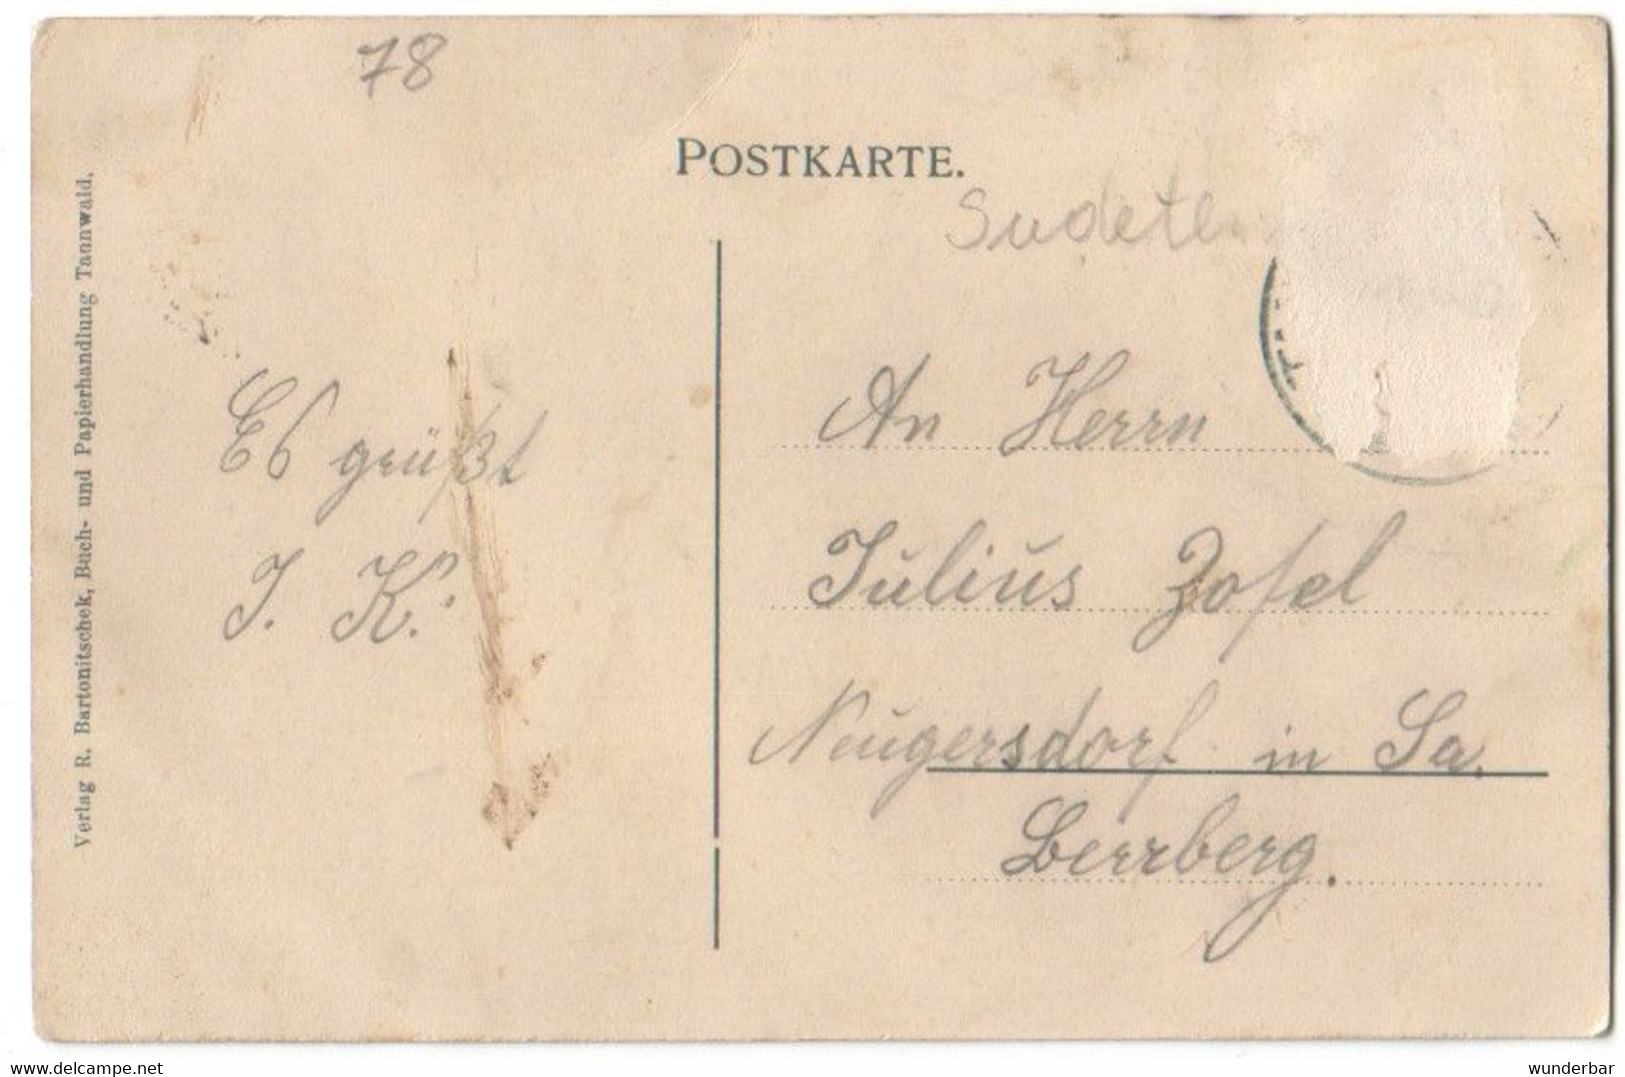 78
POSTKARTE.
Verlag R. Bartonitschek, Buch- und Papierhandlung Tannwald.
Es grüßt
J. K.
An Herrn
Julius Zosel
Neugersdorf in Sa.
www.delcampe.net
wunderbar